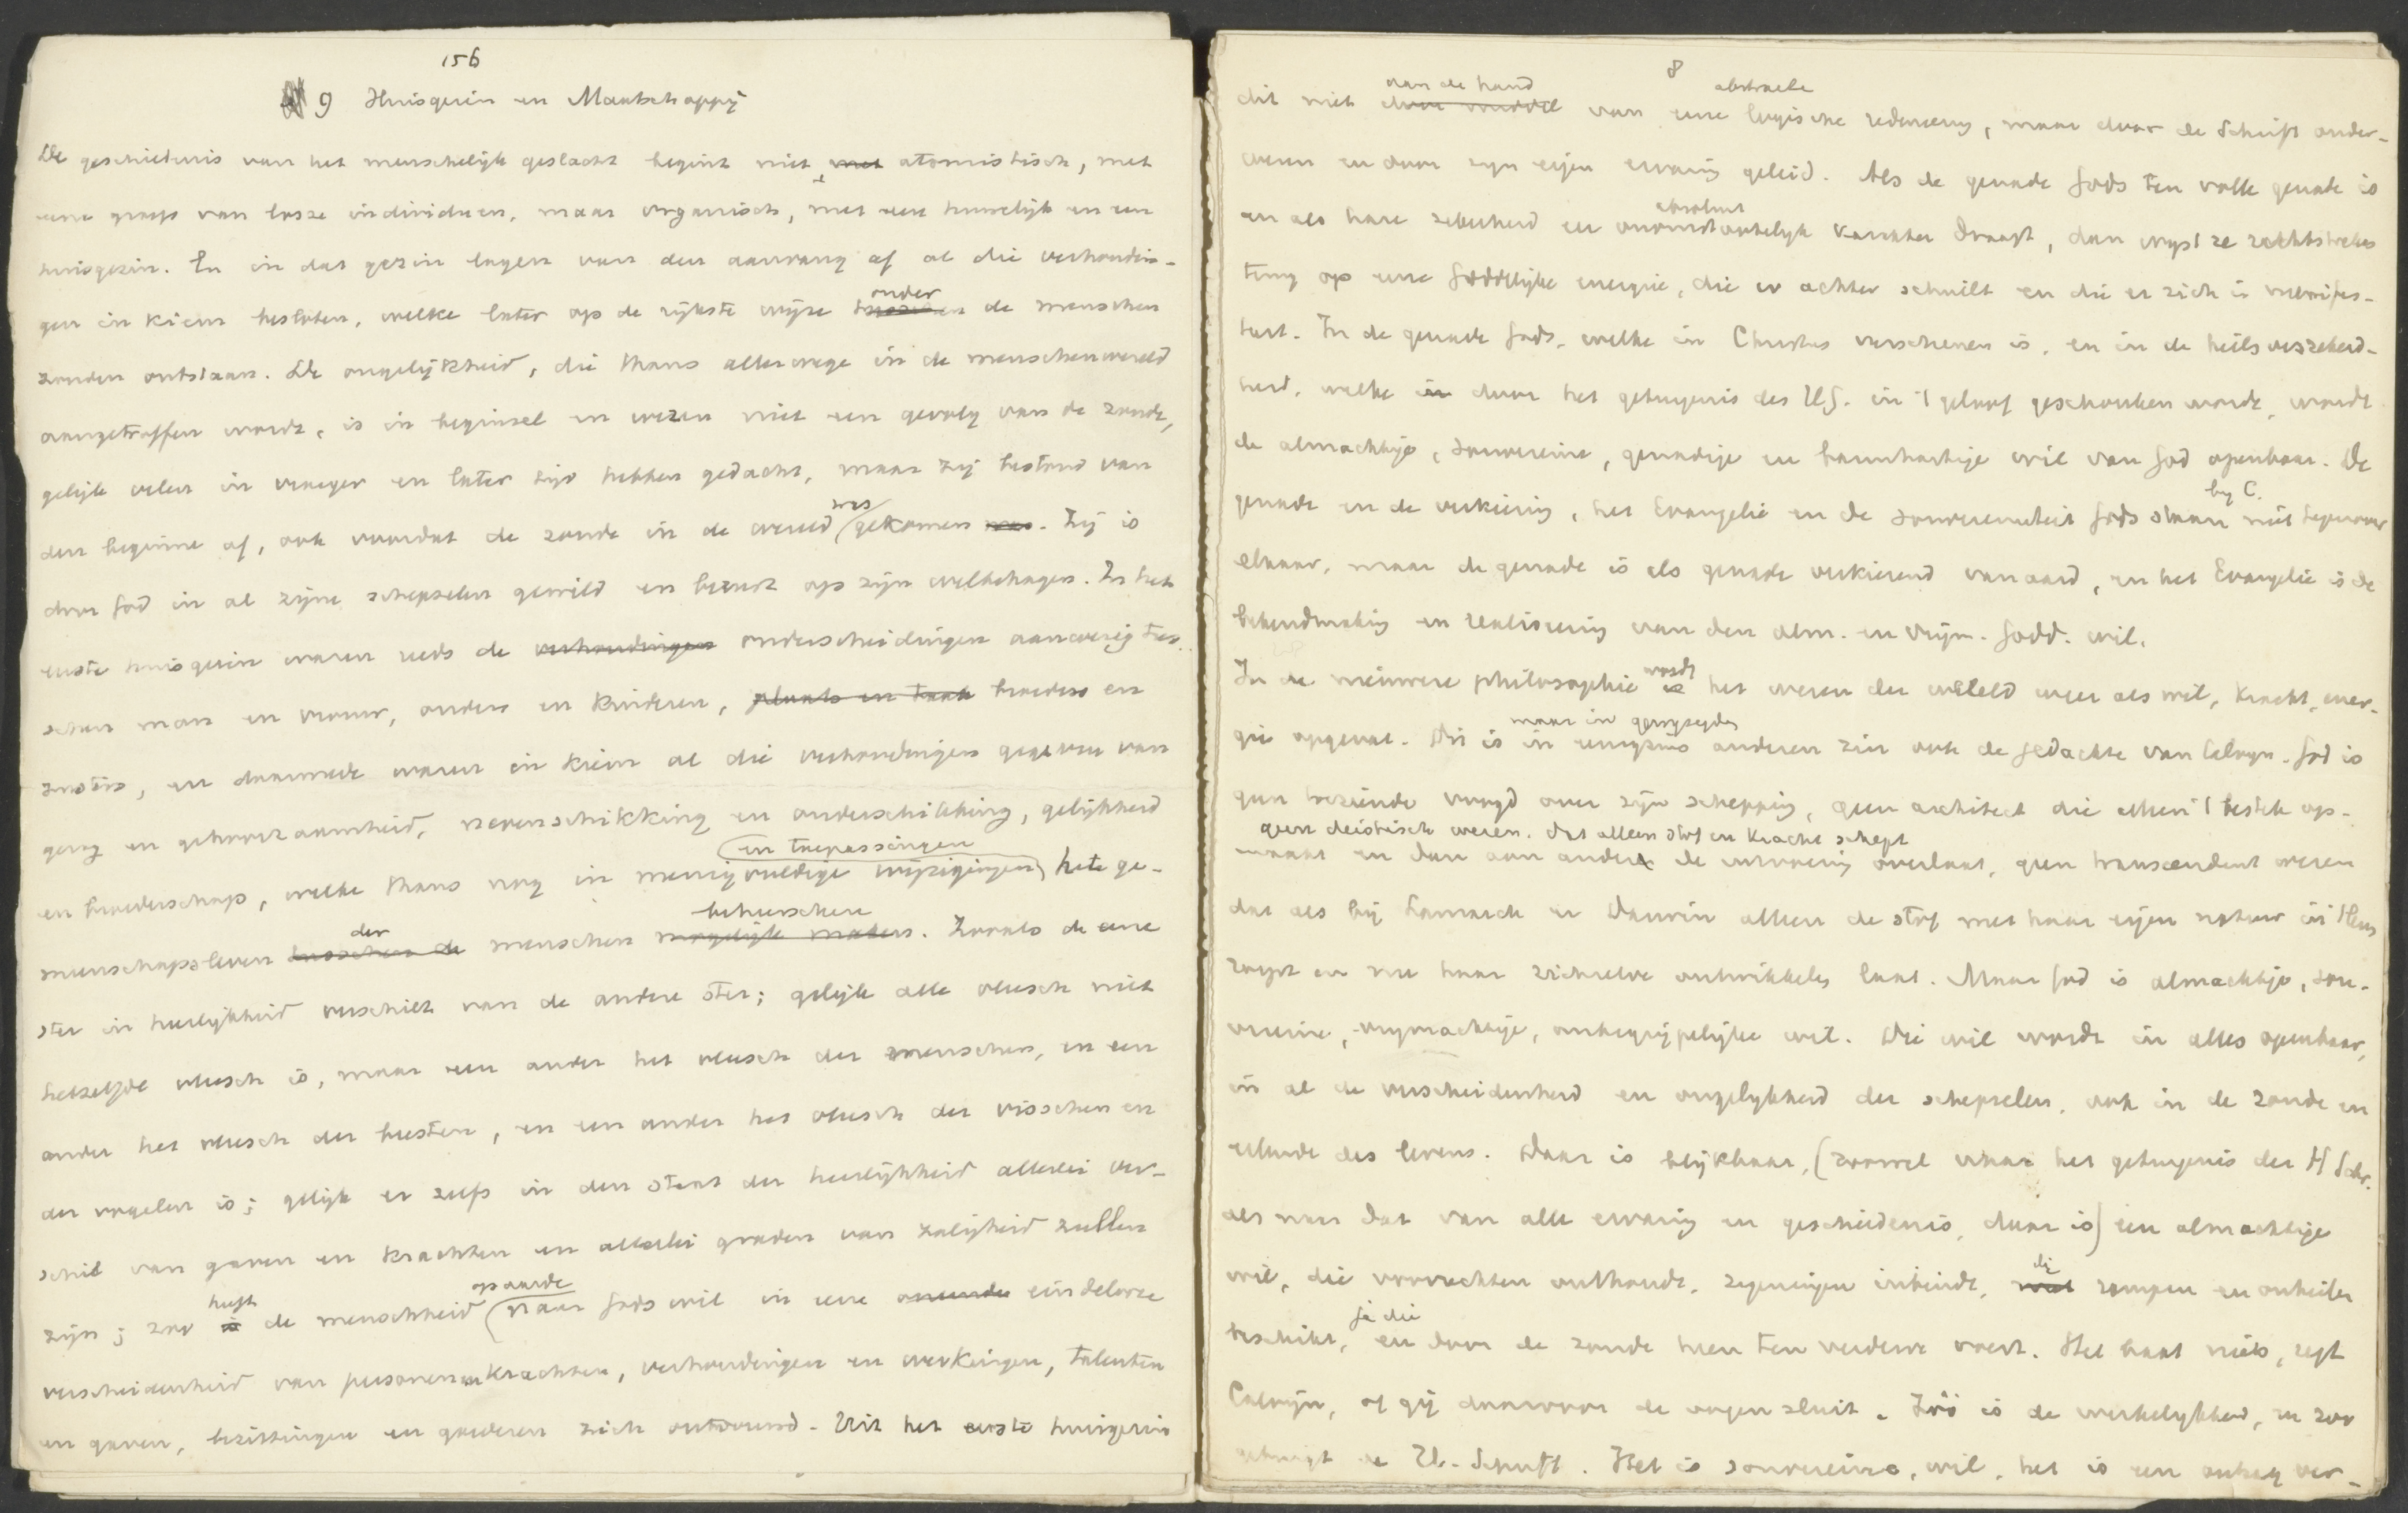 156
9 Huisgezin en Maatschappij
De geschiedenis van het menschelijk geslacht begint niet met atomistisch, met
eene groep van losse individuen, maar organisch, met een huwelijk en een
huisgezin. En in dat gezin lagen van den aanvang af al die verhoudin-
gen in kiem besloten, welke later op de rijkste wijze tusschen onder de menschen
zouden ontstaan. De ongelijkheid, die thans allerwege in de menschenwereld
aangetroffen wordt, is in beginsel en wezen niet een gevolg van de zonde,
gelijk velen in vroeger en later tijd hebben gedacht, maar zij bestond van
den beginne af, ook voordat de zonde in de wereld was gekomen was. Zij is
door God in al zijne schepselen gewild en berust op zijn welbehagen. In het
eerste huisgezin waren reeds de verhoudingen onderscheidingen aanwezig tus-
schen man en vrouw, ouders en kinderen, plaats en taak broeders en
zusters, en daarmede waren in kiem al die verhoudingen gegeven van
gezag en gehoorzaamheid, nevenschikking en onderschikking, gelijkheid
en broederschap, welke thans nog in menigvuldige wijzigingen en toepassingen hete ge-
meenschapsleven tusschen de der menschen mogelijk maken beheerschen. Zooals de eene
ster in heerlijkheid verschilt van de andere ster; gelijk alle vleesch niet
hetzelfde vleesch is, maar een ander het vleesch der menschen, en een
ander het vleesch der beesten, en een ander het vleesch der visschen en
der vogelen is; gelijk er zelfs in den staat der heerlijkheid allerlei ver-
schil van gaven en krachten en allerlei graden van zaligheid zullen
zijn; zoo is heeft de menschheid op aarde naar Gods wil in eene eindelooze
verscheidenheid van personen en krachten, verhoudingen en werkingen, talenten
en gaven, bezittingen en goederen zich ontvouwd. Uit het eerste huisgezin
8
dit niet door middel aan de hand van eene logische abstracte redeneering, maar door de Schrift onder-
wezen en door zijn eigen ervaring geleid. Als de genade Gods ten volle genade is
en als hare zekerheid een onomstootelijk absoluut karakter draagt, dan wijst ze rechtstreeks
terug op eene Goddelijke energie, die er achter schuilt en die er zich in manifes-
teert. In de genade Gods, welke in Christus verschenen is, en in de heilsverzekerd-
heid, welke in door het getuigenis des H.G. in 't geloof geschonken wordt, wordt
de almachtige, souvereine, genadige en barmhartige wil van God openbaar. De
genade en de verkiezing, het Evangelie en de souvereiniteit Gods staan bij C. niet tegenover
elkaar, maar de genade is als genade verkiezend van aard, en het Evangelie is de
bekendmaking en realiseering van den alm. en vrijm. Godd. wil.
In de nieuwere philosophie is wordt het wezen der wereld weer als wil, kracht, ener-
gie opgevat. Dit is in eenigszins maar in gewijzigden anderen zin ook de gedachte van Calvijn. God is
geen toeziende voogd over zijn schepping, geen architect die alleen 't bestek op-
geen deistisch wezen, dat alleen stof en kracht schept
maakt en dan aan anderen de uitvoering overlaat, geen transcendent wezen
dat als bij Lamarck en Darwin alleen de stof met haar eigen natuur in 't leven
roept en nu haar zichzelve ontwikkelen laat. Maar God is almachtige, sou-
vereine, vrijmachtige, onbegrijpelijke wil. Die wil wordt in alles openbaar,
in al de verscheidenheid en ongelijkheid der schepselen, ook in de zonde en
ellende des levens. Daar is blijkbaar, (zoowel naar het getuigenis der H Schr.
als naar dat van alle ervaring en geschiedenis, daar is) een almachtige
wil, die voorrechten onthoudt, zegeningen inbindt, die rampen en onheilen
beschikt, ja die en door de zonde heen ten verderve voert. Het baat niets, zegt
Calvijn, of gij daarvoor de oogen sluit. Zóó is de werkelijkheid, en zoo
getuigt de H. Schrift. Het is souvereine, wil, het is een onbegr